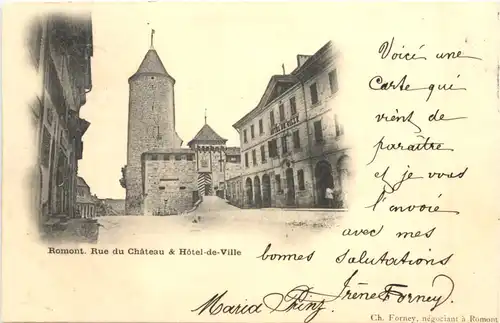 Voici une
Carte qui
vient de
paraître
et je vous
l'envoie
avec mes
bonnes salutations
Irène Forney
Maria
HÔTEL DE VILLE
Romont. Rue du Château & Hôtel-de-Ville
Ch. Forney, négociant à Romont